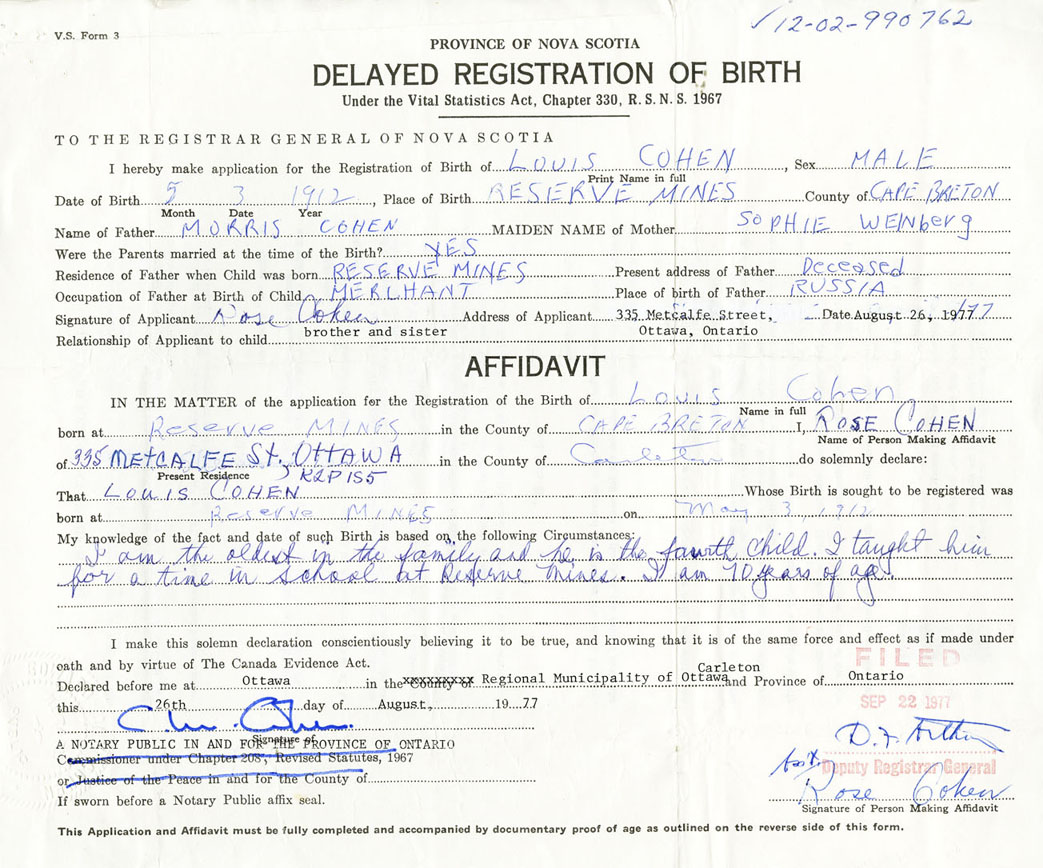 V.S. Form 3
✓12-02-990762
PROVINCE OF NOVA SCOTIA
DELAYED REGISTRATION OF BIRTH
Under the Vital Statistics Act, Chapter 330, R. S. N. S. 1967
TO THE REGISTRAR GENERAL OF NOVA SCOTIA
I hereby make application for the Registration of Birth of LOUIS COHEN, Sex MALE
Print Name in full
Date of Birth 5 3 1912, Place of Birth RESERVE MINES County of CAPE BRETON
Month Date Year
Name of Father MORRIS COHEN MAIDEN NAME of Mother SOPHIE WEINberg
Were the Parents married at the time of the Birth? YES
Residence of Father when Child was born RESERVE MINES Present address of Father Deceased
Occupation of Father at Birth of Child MERCHANT Place of birth of Father RUSSIA
Signature of Applicant Rose Cohen Address of Applicant 335 Metcalfe Street, Date August 26, 1977
Relationship of Applicant to child brother and sister Ottawa, Ontario
AFFIDAVIT
IN THE MATTER of the application for the Registration of the Birth of Louis Cohen
Name in full
born at Reserve MINES in the County of CAPE BRETON I, ROSE COHEN
Name of Person Making Affidavit
of 335 METCALFE St, OTTAWA in the County of Carleton do solemnly declare:
Present Residence K2P1S5
That LOUIS COHEN Whose Birth is sought to be registered was
born at Reserve MINES on May 3 1912
My knowledge of the fact and date of such Birth is based on the following Circumstances:
I am the oldest in the family and he is the fourth child. I taught him
for a time in School at Reserve Mines. I am 70 years of age.
I make this solemn declaration conscientiously believing it to be true, and knowing that it is of the same force and effect as if made under
oath and by virtue of The Canada Evidence Act.
FILED
Carleton
Declared before me at Ottawa in the County of Regional Municipality of Ottawa and Province of Ontario
this 26th day of August, 1977
SEP 22 1977
Signature of
A NOTARY PUBLIC IN AND FOR THE PROVINCE OF ONTARIO
Commissioner under Chapter 208, Revised Statutes, 1967
Deputy Registrar General
or Justice of the Peace in and for the County of
Rose Cohen
If sworn before a Notary Public affix seal.
Signature of Person Making Affidavit
This Application and Affidavit must be fully completed and accompanied by documentary proof of age as outlined on the reverse side of this form.